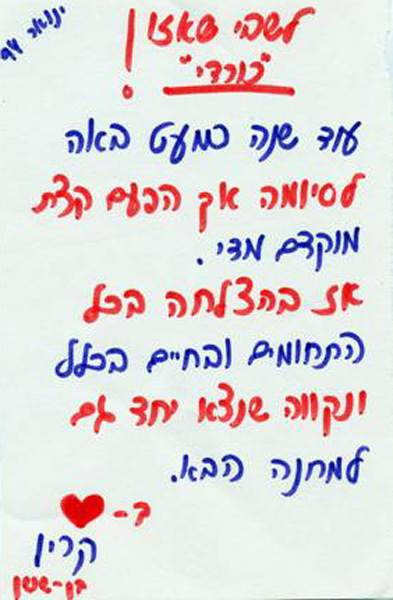 ינואר 94
לשבי שאזו!
"כורדי"
עוד שנה כמעט באה
לסיומה אך הפעם קצת
מוקדם מדי.
אז בהצלחה בכל
התחומים ובחיים בכלל
ונקווה שנצא יחד גם
למחנה הבא.
ב-♥
קרין
בן-ששון